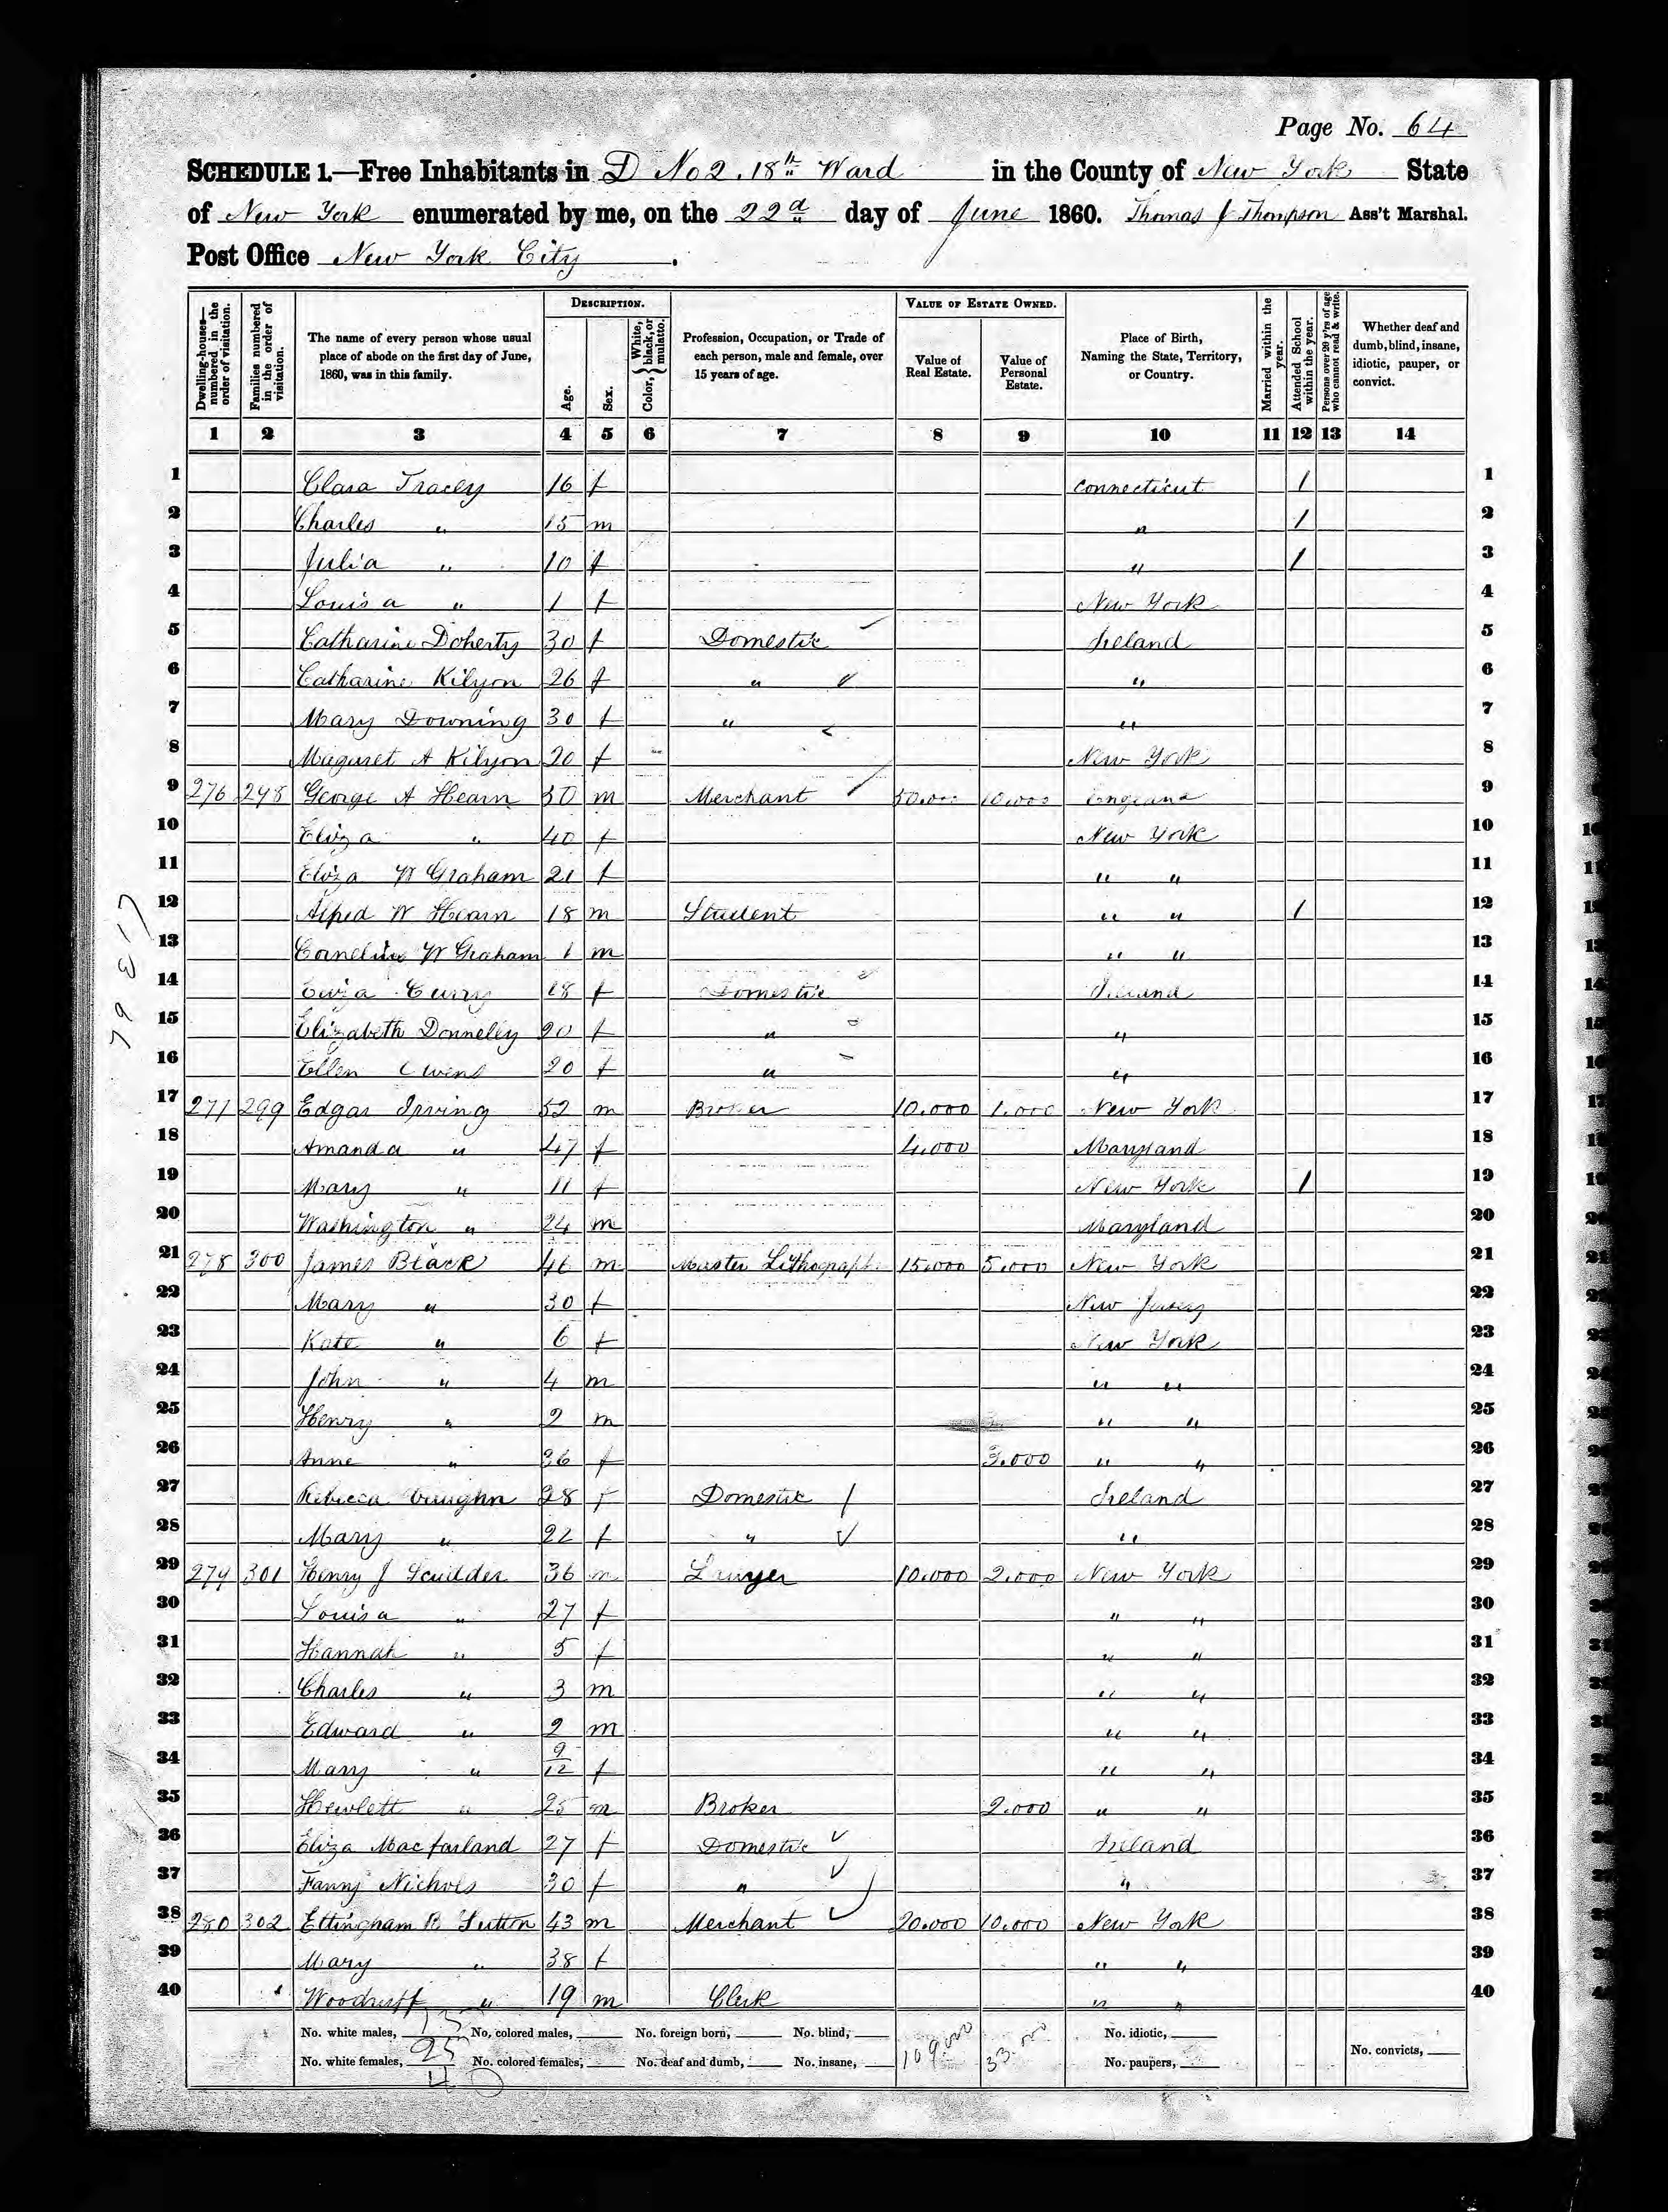 Page No. 64
SCHEDULE 1.—Free Inhabitants in D No 2. 18th Ward in the County of New York State
of New York enumerated by me, on the 22d day of June 1860. Thomas J Thompson Ass't Marshal.
Post Office New York City.
Dwelling-houses—numbered in the order of visitation.
Families numbered in the order of visitation.
The name of every person whose usual place of abode on the first day of June, 1860, was in this family.
DESCRIPTION.
Age.
Sex.
Color, { White, black, or mulatto.
Profession, Occupation, or Trade of each person, male and female, over 15 years of age.
VALUE OF ESTATE OWNED.
Value of Real Estate.
Value of Personal Estate.
Place of Birth, Naming the State, Territory, or Country.
Married within the year.
Attended School within the year.
Persons over 20 y'rs of age who cannot read & write.
Whether deaf and dumb, blind, insane, idiotic, pauper, or convict.
1 2 3 4 5 6 7 8 9 10 11 12 13 14
1 Clara Tracey 16 f Connecticut / 1
2 Charles " 15 m " / 2
3 Julia " 10 f " / 3
4 Louisa " 1 f New York 4
5 Catharine Doherty 30 f Domestic Ireland 5
6 Catharine Kilyon 26 f " " 6
7 Mary Downing 30 f " " 7
8 Magaret A Kilyon 20 f New York 8
9 276 298 George A Hearn 50 m Merchant 50.000 10.000 England 9
10 Eliza " 40 f New York 10
11 Eliza W Graham 21 f " " 11
12 Alfred W Hearn 18 m Student " " / 12
13 Cornelius W Graham 1 m " " 13
14 Eliza Curry 18 f Domestic Ireland 14
15 Elizabeth Donnelly 20 f " " 15
16 Ellen Owens 20 f " " 16
17 277 299 Edgar Irving 52 m Broker 10.000 1.000 New York 17
18 Amanda " 47 f 4.000 Maryland 18
19 Mary " 11 f New York / 19
20 Washington " 24 m Maryland 20
21 278 300 James Black 46 m Master Lithograph 15.000 5.000 New York 21
22 Mary " 30 f New Jersey 22
23 Kate " 6 f New York 23
24 John " 4 m " " 24
25 Henry " 2 m " " 25
26 Anne " 36 f 3.000 " " 26
27 Rebecca Vaughn 28 f Domestic Ireland 27
28 Mary " 22 f " " 28
29 279 301 Henry J Scudder 36 m Lawyer 10.000 2.000 New York 29
30 Louisa " 27 f " " 30
31 Hannah " 5 f " " 31
32 Charles " 3 m " " 32
33 Edward " 2 m " " 33
34 Mary " 9/12 f " " 34
35 Hewlett " 25 m Broker 2.000 " " 35
36 Eliza Macfarland 27 f Domestic Ireland 36
37 Fanny Nichols 30 f " " 37
38 280 302 Ettingham B Sutton 43 m Merchant 20.000 10.000 New York 38
39 Mary " 38 f " " 39
40 Woodruff " 19 m Clerk " " 40
No. white males, 15 No. colored males, No. foreign born, No. blind, 109.000 33.000 No. idiotic,
No. white females, 25 No. colored females, No. deaf and dumb, No. insane, No. paupers, No. convicts,
40